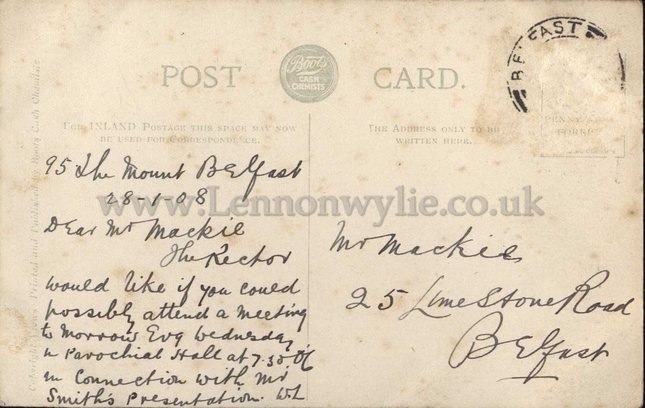 POST CARD.
Boots
CASH
CHEMISTS
BELFAST
FOR INLAND POSTAGE THIS SPACE MAY NOW
BE USED FOR CORRESPONDENCE.
THE ADDRESS ONLY TO BE
WRITTEN HERE.
www.Lennonwylie.co.uk
95 The Mount Belfast
28-1-08
Dear Mr Mackie
The Rector
would like if you could
possibly attend a meeting
to morrow Evg Wednesday
in Parochial Hall at 7.30
in Connection with Mr
Smith's Presentation. WL
Mr Mackie
25 Limestone Road
Belfast